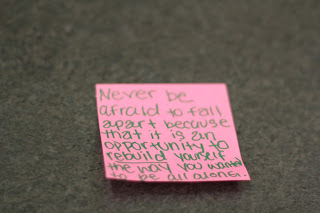 Never be
afraid to fall
apart because
that it is an
opportunity to
rebuild yourself
the way you wanted
to be all along.